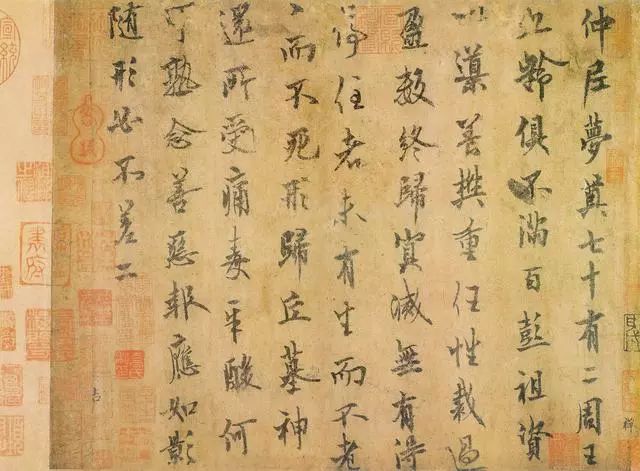 仲尼夢奠七十有二周王
九齡俱不滿百彭祖資
以導養樊重任性裁過
盈數終歸冥滅無有得
停住者未有生而不老
〻而不死形歸丘墓神
還所受痛毒辛酸何
可熟念善惡報應如影
随形必不差二